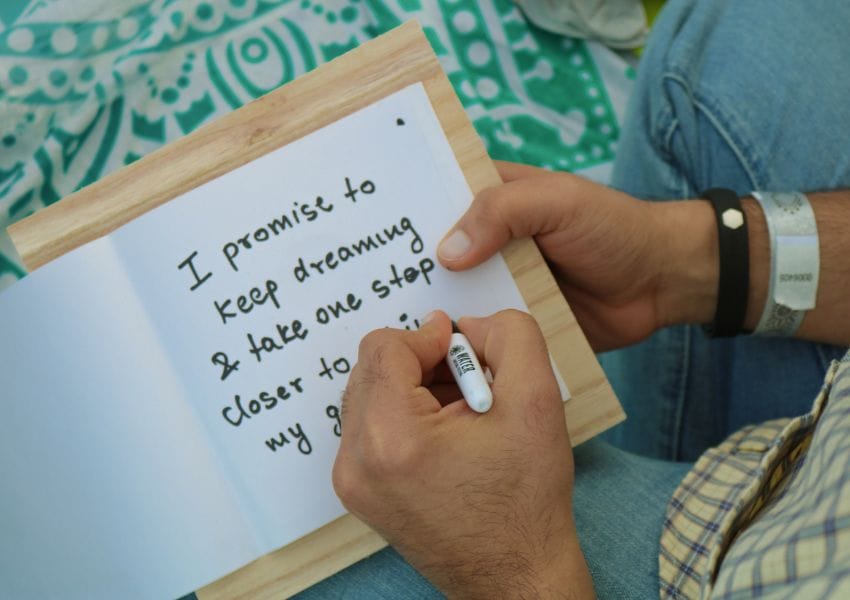 I promise to
keep dreaming
& take one step
closer to
my
WATER
0006405